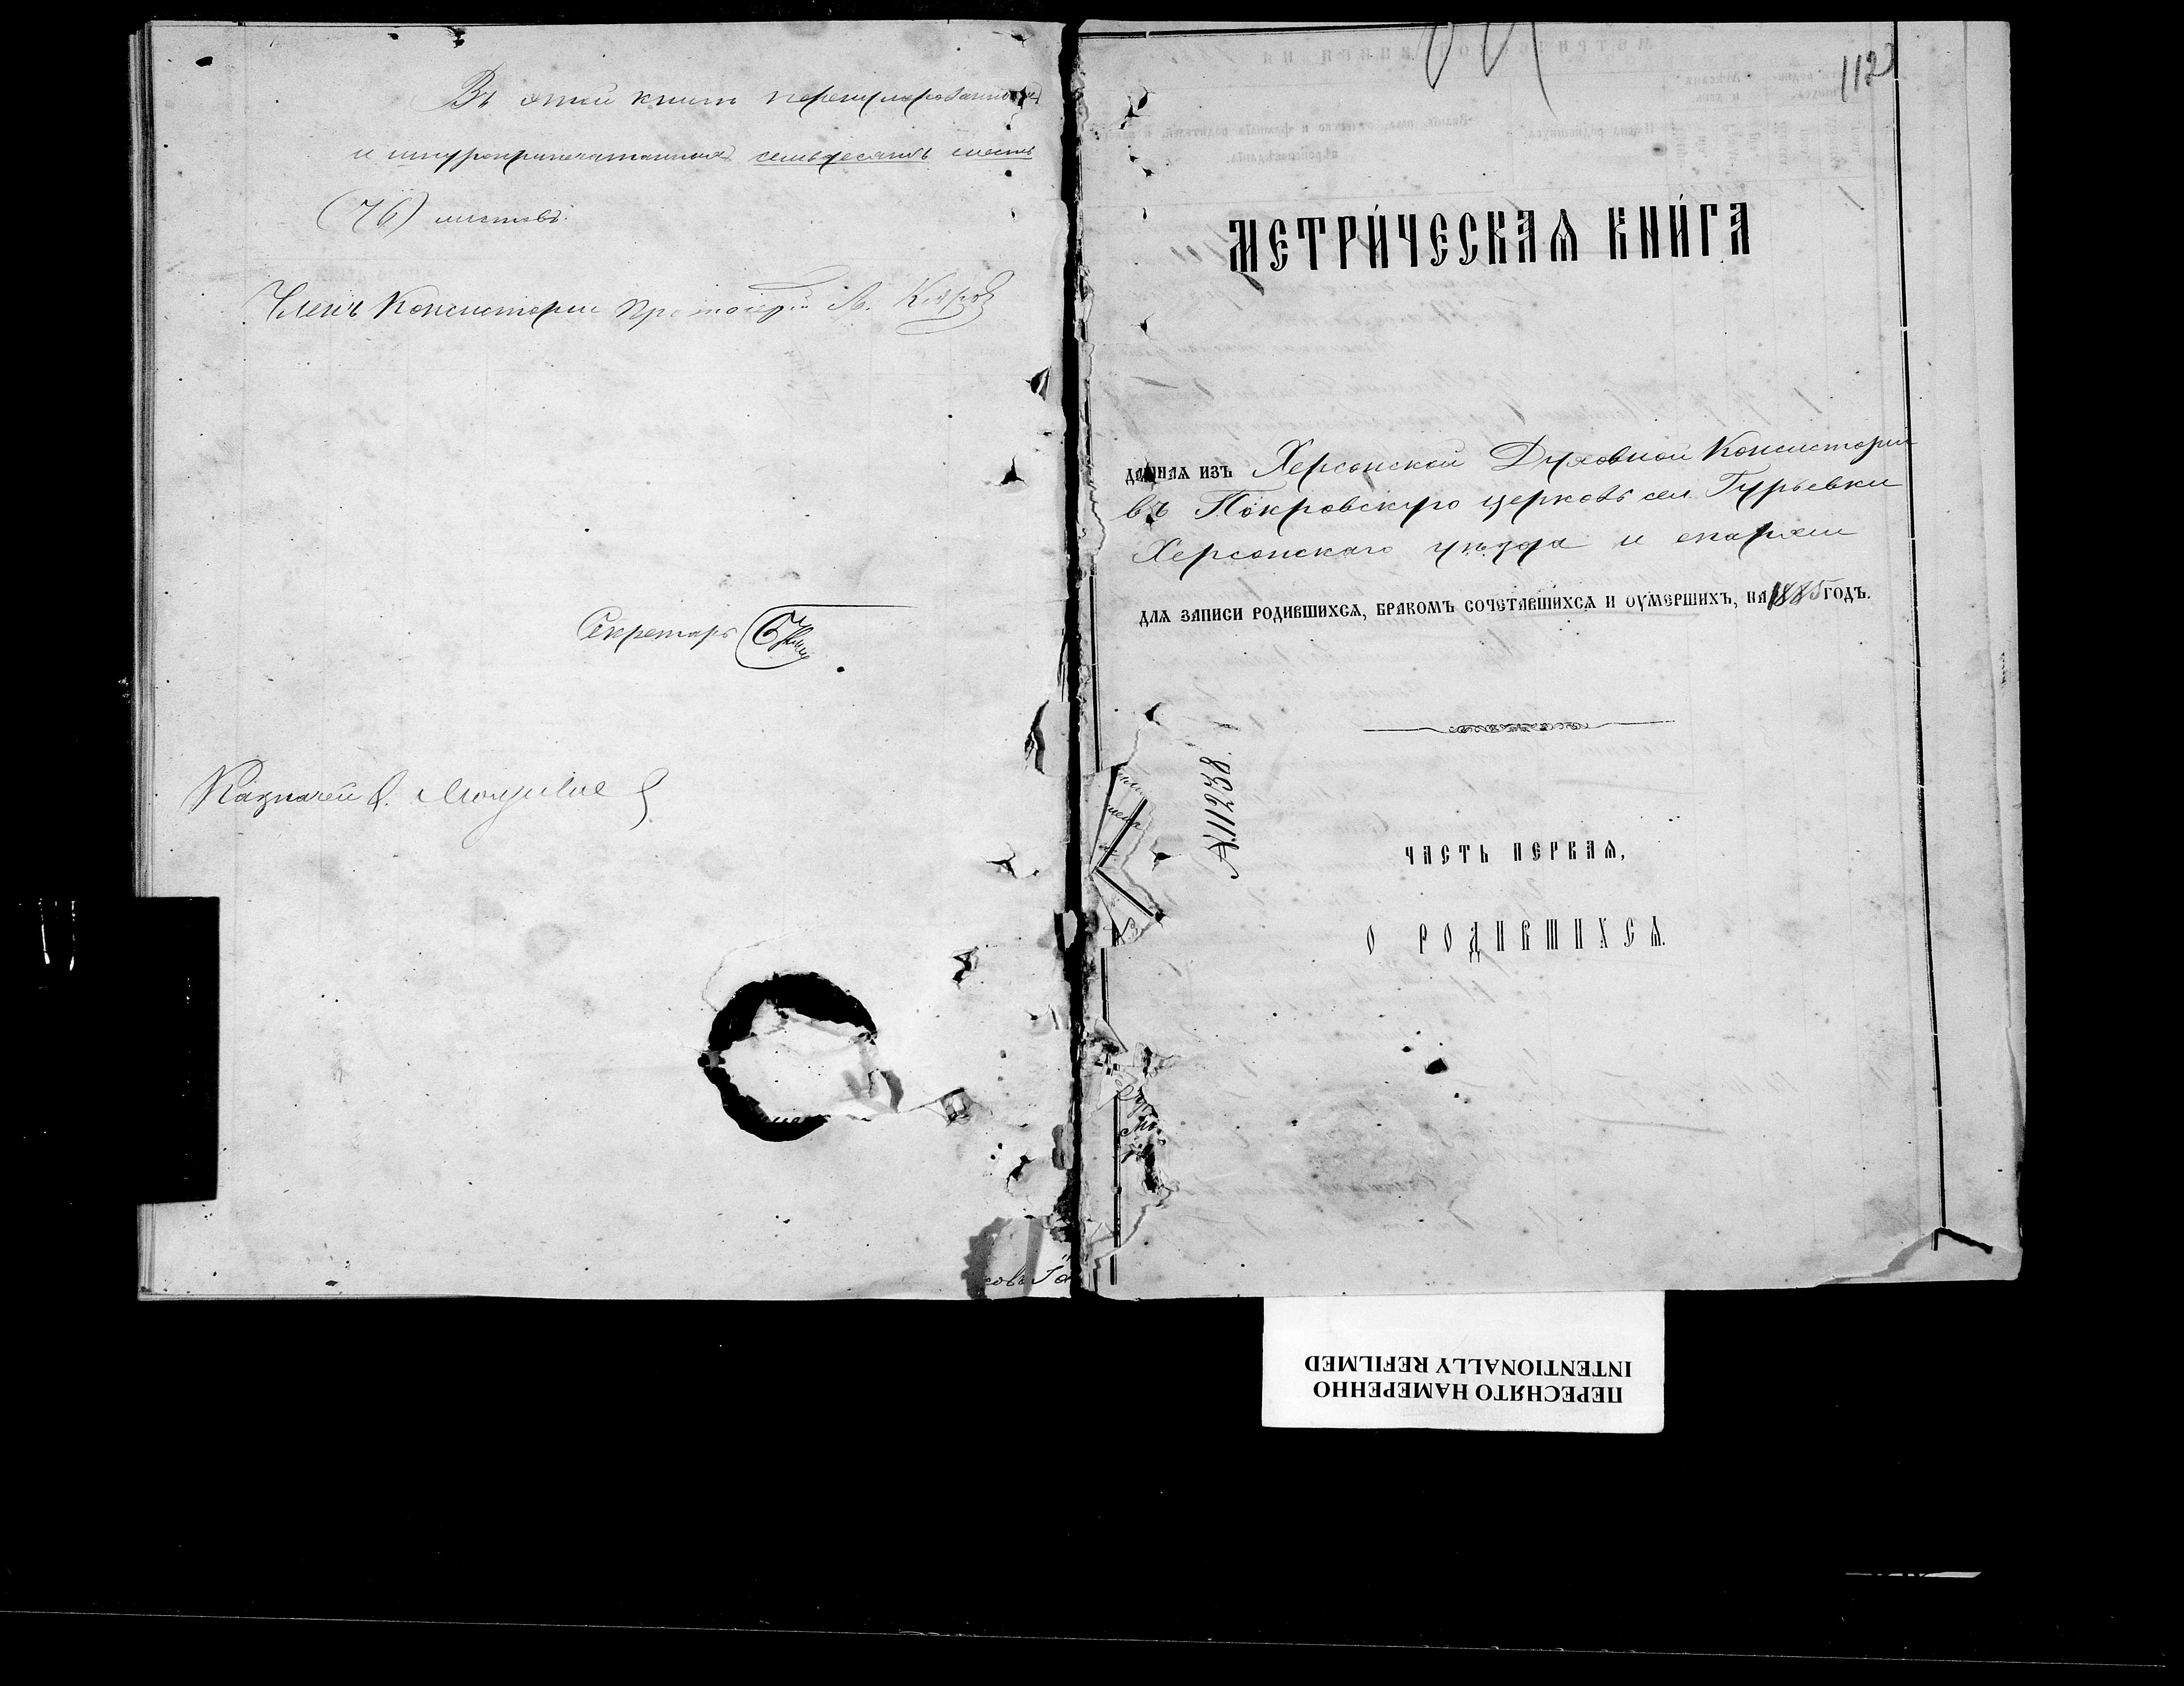 Въ этой книгѣ перенумерованныхъ
и шнуроприпечатанныхъ семьдесятъ шесть
(76) листовъ.
Членъ Консисторіи Протоіерей
Секретарь
Казначей
112
МЕТРИ́ЧЕСКАѦ КНИ́ГА
даннаѧ изъ Херсонской Духовной Консисторіи
въ Покровскую церковь сел. Гурьевки
Херсонскаго уѣзда и епархіи
длѧ записи родившихсѧ, бракомъ сочетавшихсѧ и оумершихъ, на 1885 годъ.
№ 11238.
ЧАСТЬ ПЕРВАѦ,
О РОДИВШИХСѦ.
ПЕРЕСНЯТО НАМЕРЕННО
INTENTIONALLY REFILMED